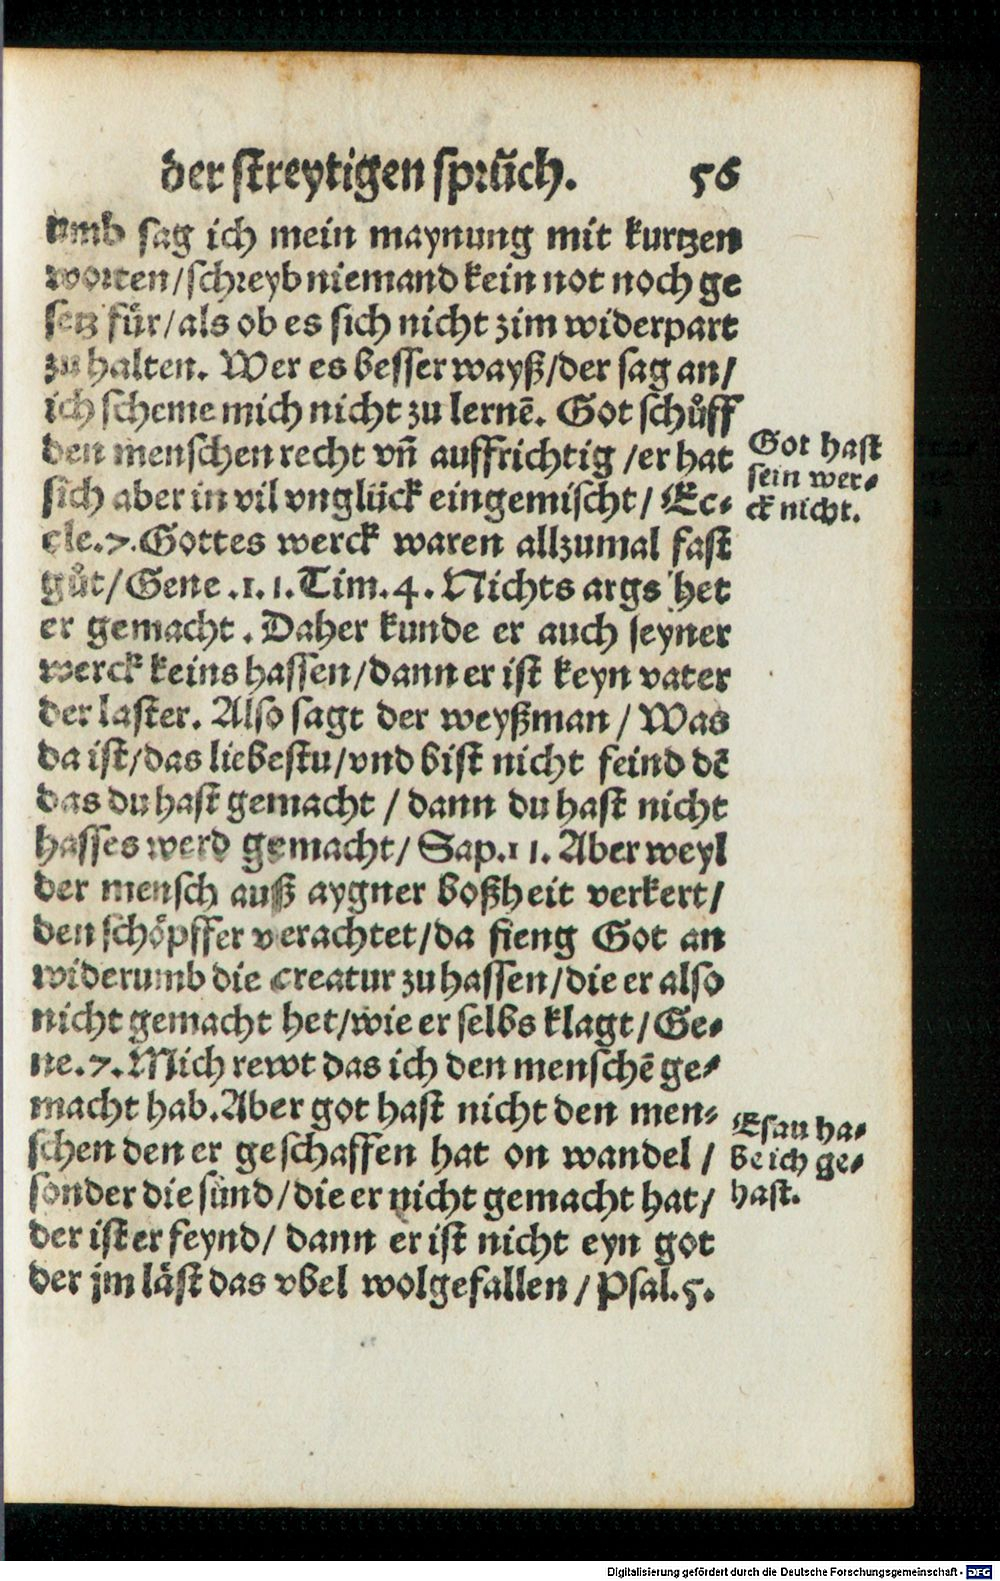 der streytigen sprüch. 56
umb sag ich mein maynung mit kurtzen
worten/schreyb niemand kein not noch ge
setz für/als ob es sich nicht zim widerpart
zu halten. Wer es besser wayß/der sag an/
ich scheme mich nicht zu lernē. Got schůff
den menschen recht vñ auffrichtig /er hat
sich aber in vil vnglück eingemischt/ Ec⸗
cle.7.Gottes werck waren allzumal fast
gůt/Gene .1. 1.Tim.4. Nichts args het
er gemacht . Daher kunde er auch seyner
werck keins hassen/dann er ist keyn vater
der laster. Also sagt der weyßman / Was
da ist/das liebestu/vnd bist nicht feind dē
das du hast gemacht / dann du hast nicht
hasses werd gemacht/ Sap.11. Aber weyl
der mensch auß aygner boßheit verkert/
den schöpffer verachtet/da fieng Got an
widerumb die creatur zu hassen/die er also
nicht gemacht het/wie er selbs klagt/Ge⸗
ne.7.Mich rewt das ich den menschē ge⸗
macht hab.Aber got hast nicht den men⸗
schen den er geschaffen hat on wandel /
sonder die sünd/die er nicht gemacht hat/
der ist er feynd/ dann er ist nicht eyn got
der jm läst das vbel wolgefallen/Psal.5.
Got hast
sein wer⸗
ck nicht.
Esau ha⸗
be ich ge⸗
hast.
Digitalisierung gefördert durch die Deutsche Forschungsgemeinschaft - DFG